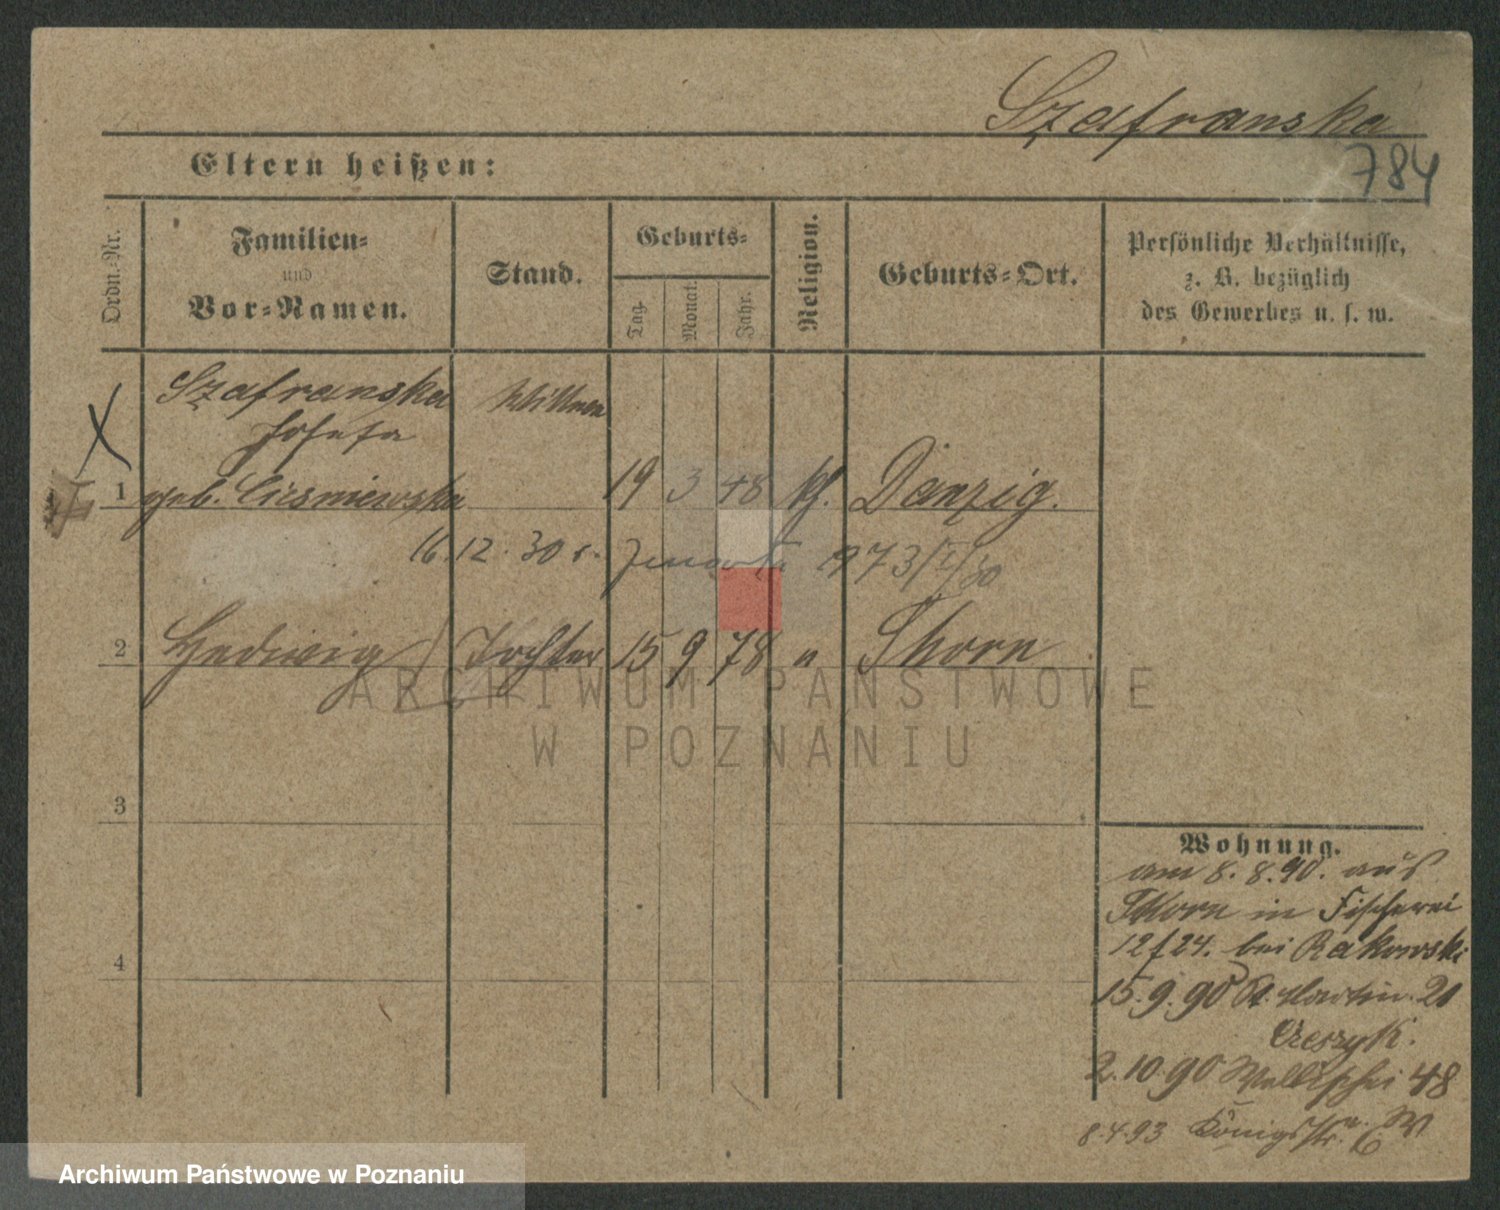 Szafranska
784
Eltern heißen:
Ordn.-Nr.
Familien-
und
Vor-Namen.
Stand.
Geburts-
Tag.
Monat.
Jahr.
Religion.
Geburts-Ort.
Persönliche Verhältnisse,
z. B. bezüglich
des Gewerbes u. s. w.
Szafranska
Josefa
1 geb. Ciesniewska 19 3 48 kth. Danzig.
16.12.30
2 Hedwig Tochter 15 9 78 " Thorn
ARCHIWUM PAŃSTWOWE
W POZNANIU
3
4
Wohnung.
am 8.8.90. aus
Thorn in Fischerei
12/24. bei Rakowski
15.9.90 St. Martin. 21
2.10.90 Wallischei 48
8.4.93 Königsstr.
Archiwum Państwowe w Poznaniu